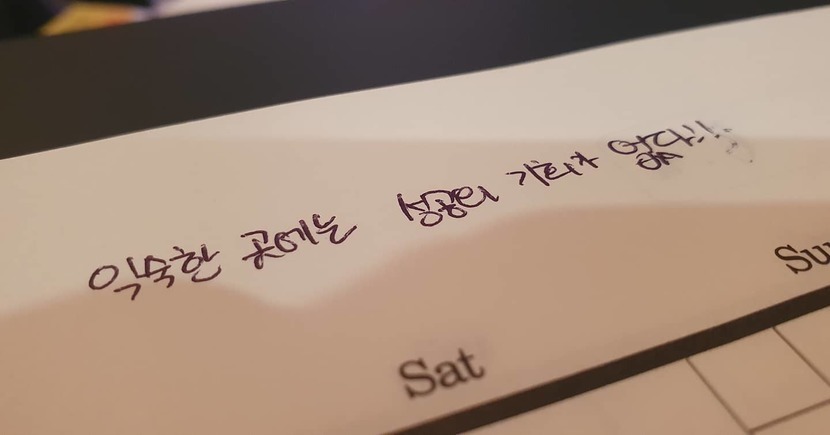 익숙한 곳에는 성공의 기회가 없다!!
Sat
Su